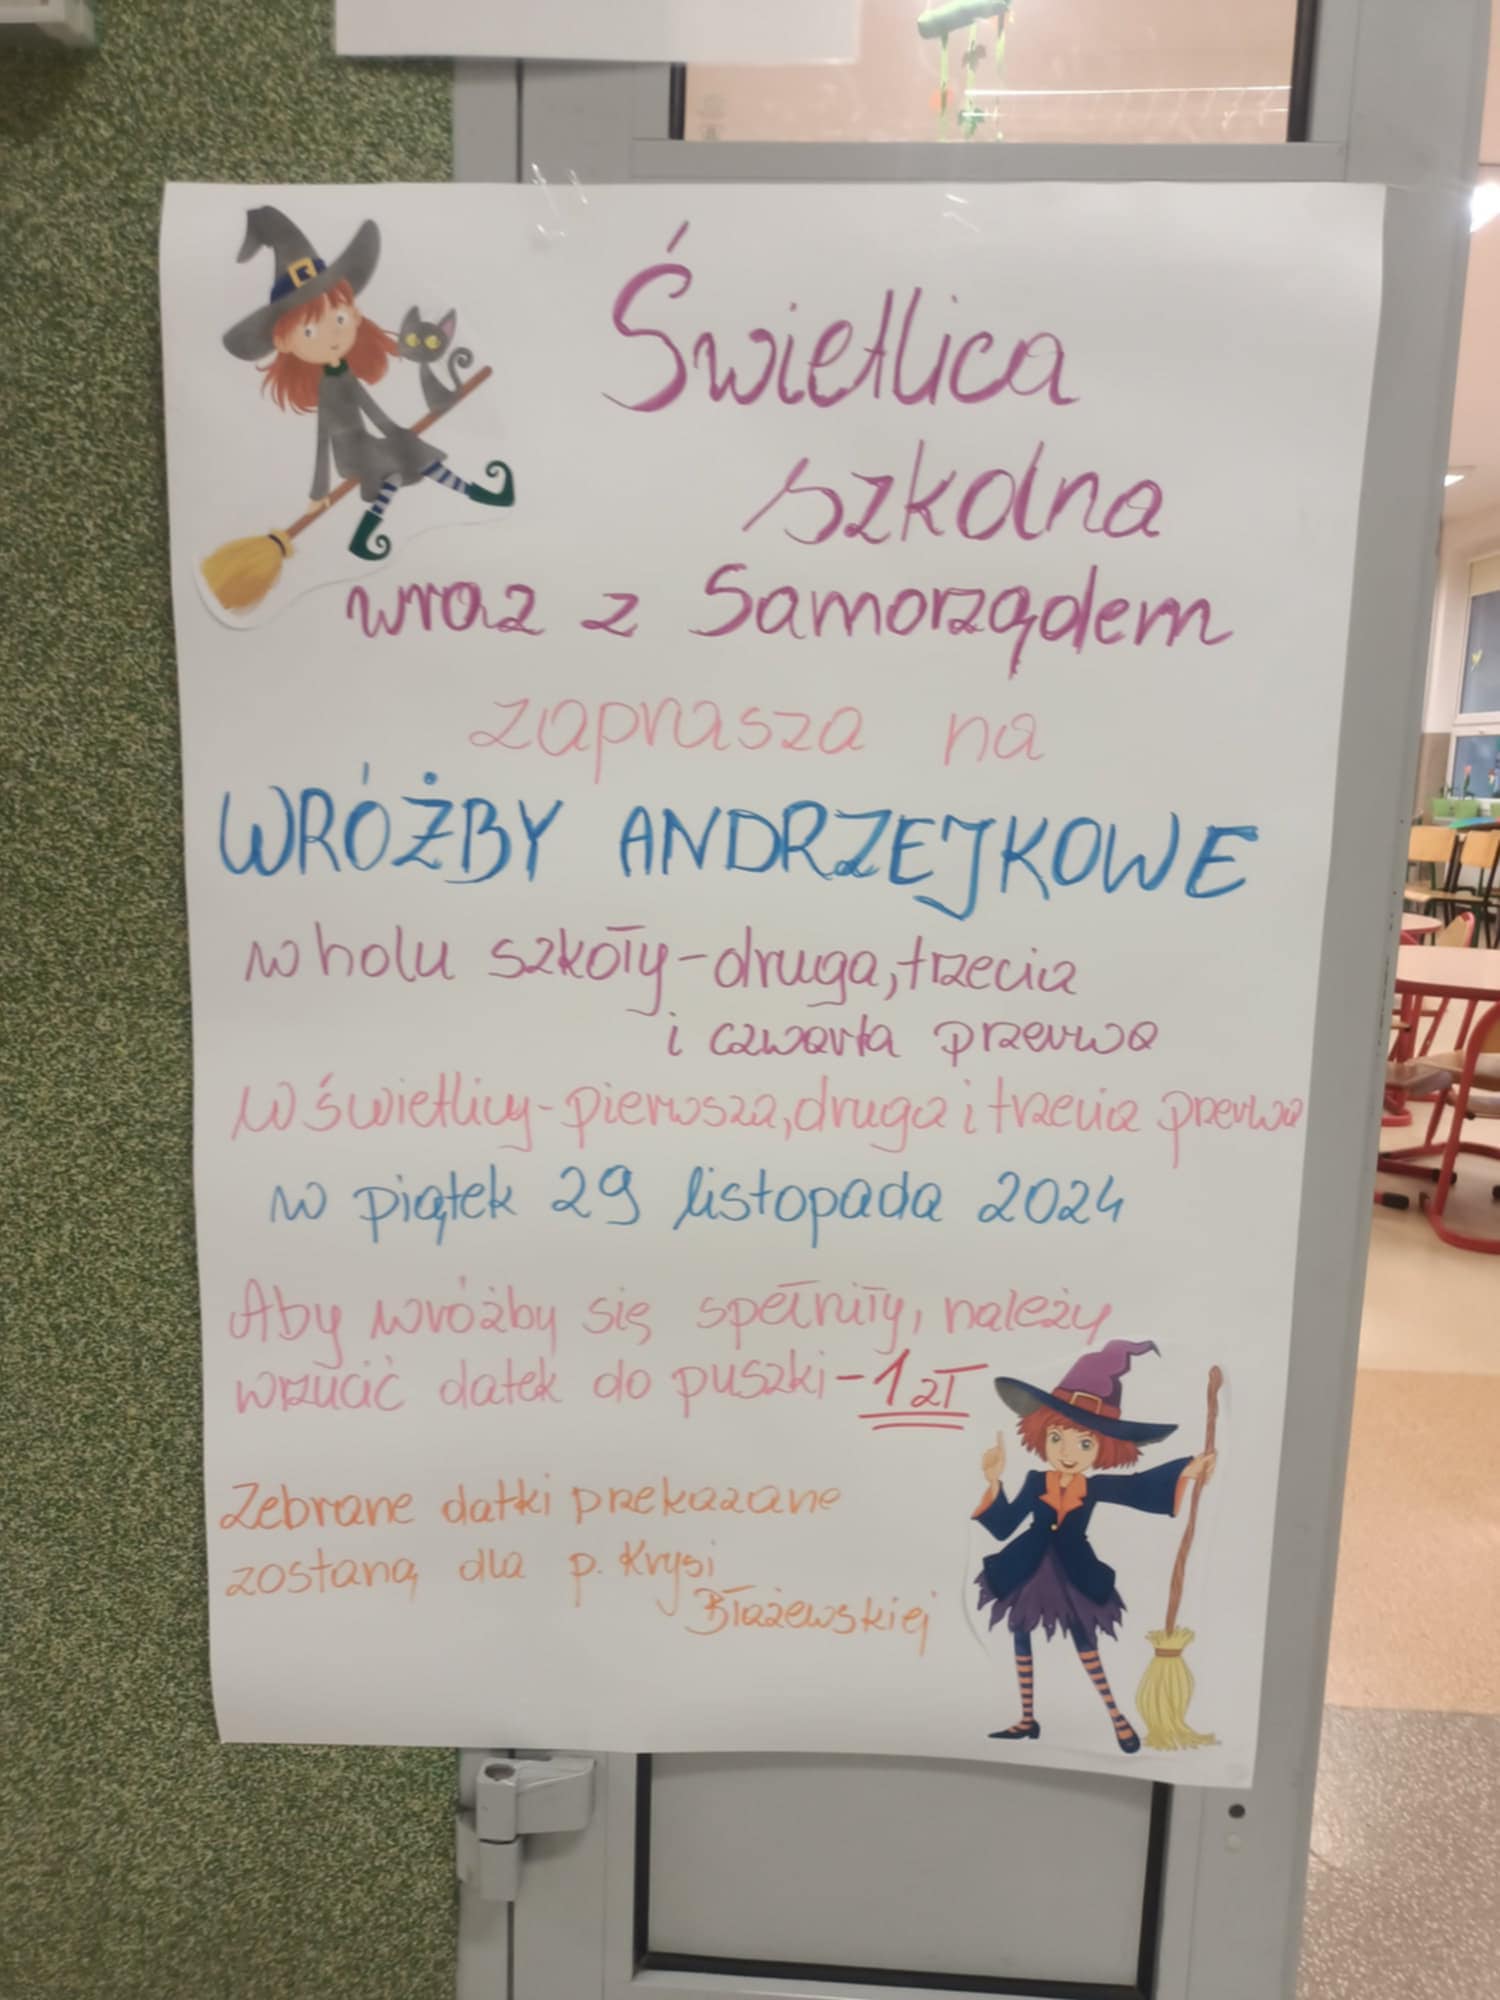 Świetlica
szkolna
wraz z Samorządem
zaprasza na
WRÓŻBY ANDRZEJKOWE
w holu szkoły - druga, trzecia
i czwarta przerwa
W świetlicy - pierwsza, druga i trzecia przerwa
w piątek 29 listopada 2024
Aby wróżby się spełniły, należy
wrzucić datek do puszki - 1 zł
Zebrane datki przekazane
zostaną dla p. Krysi
Błażewskiej